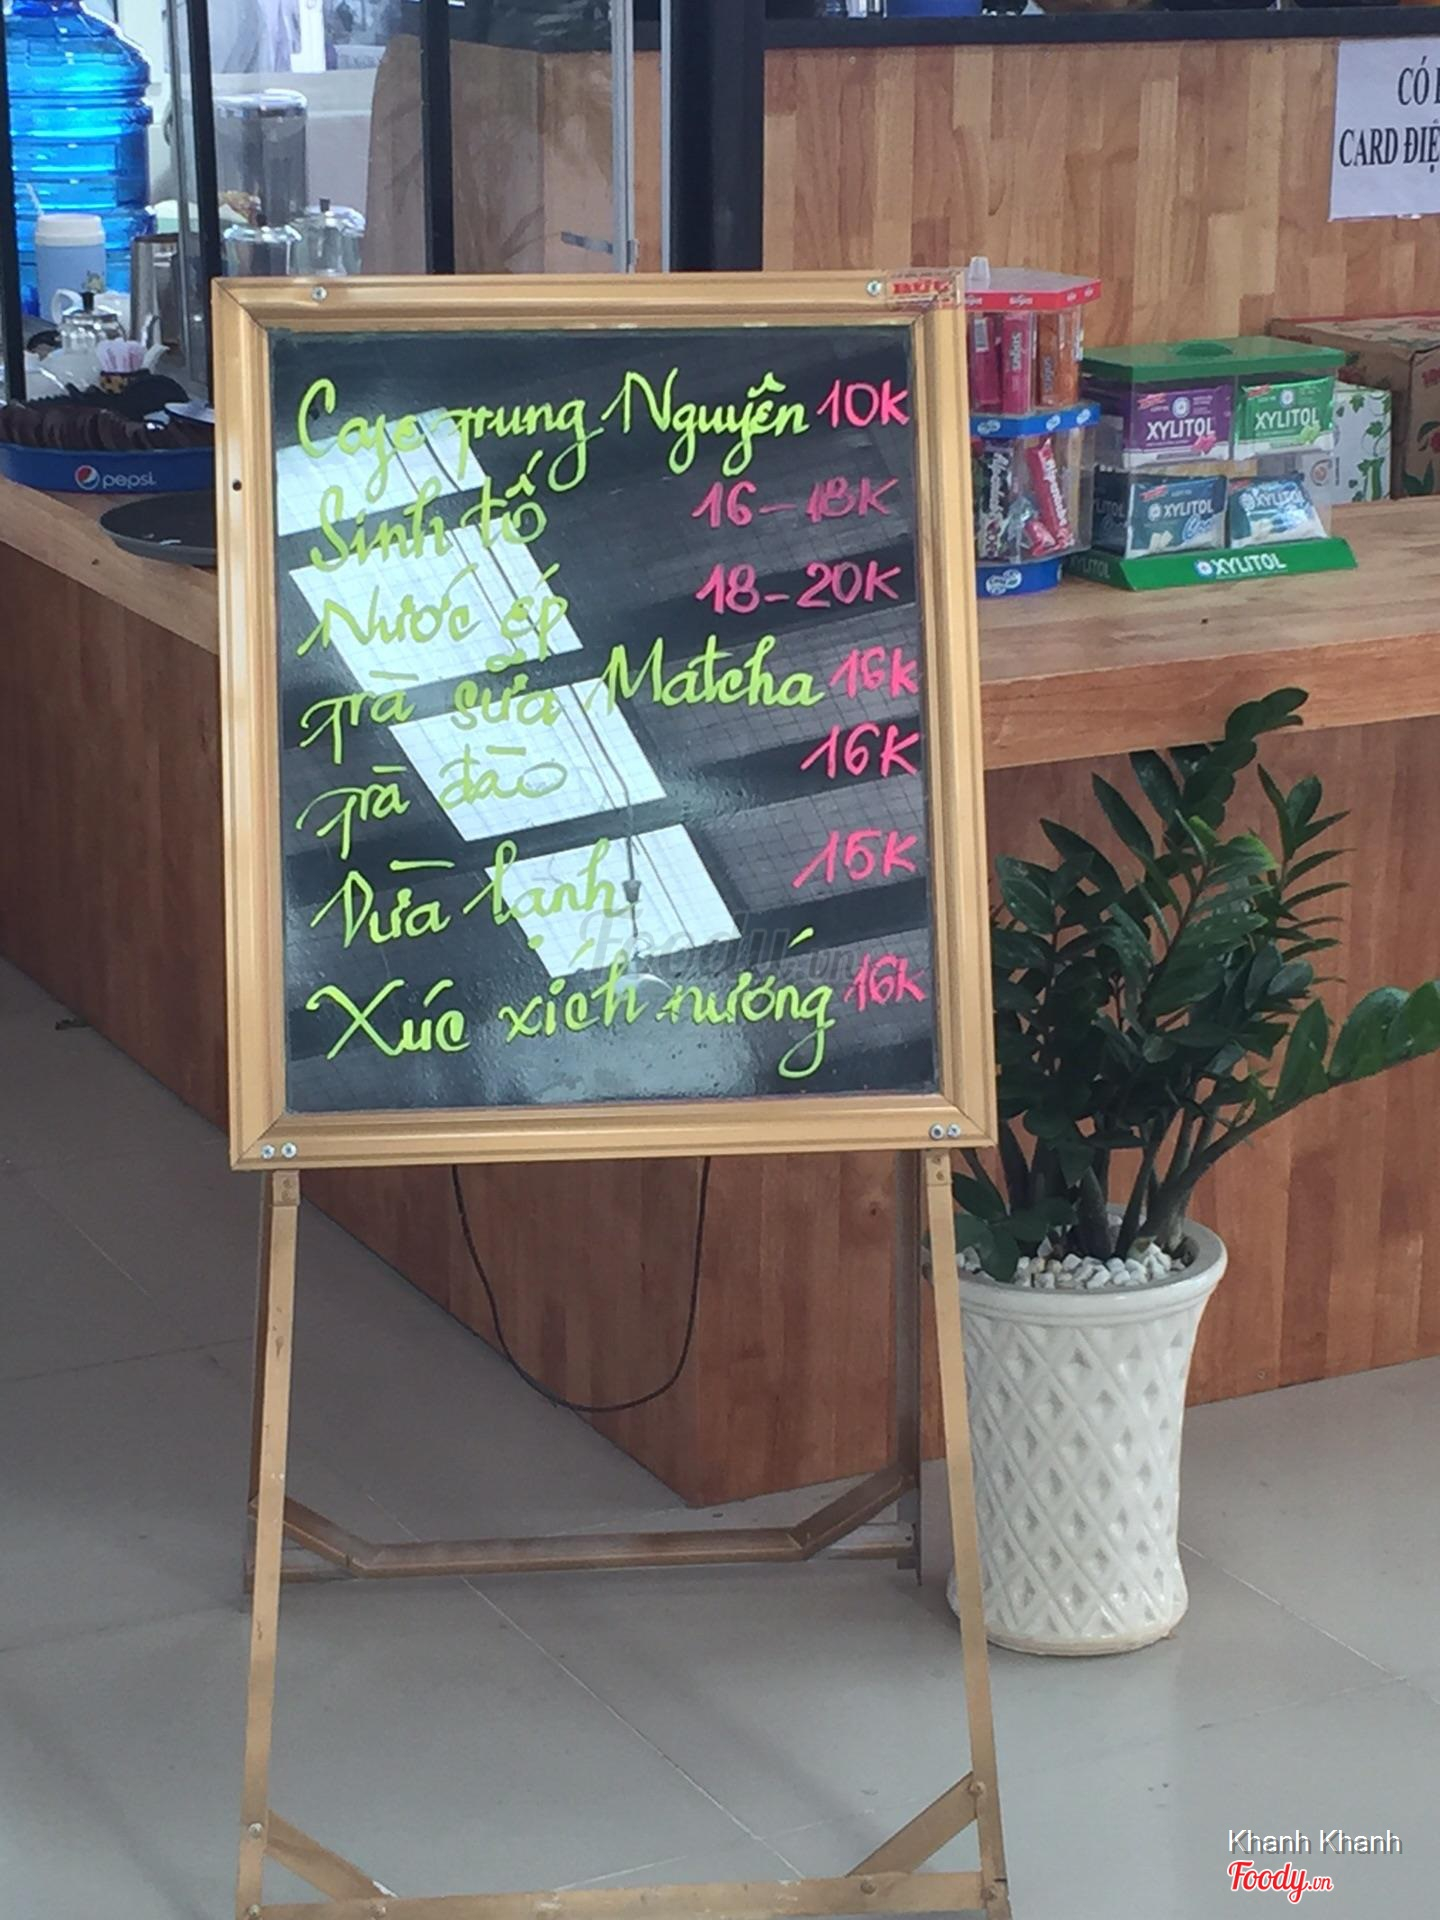 CÓ
CARD ĐIỆ
pepsi
Cafe Trung Nguyên 10K
Sinh tố 16-18K
Nước ép 18-20K
Trà sữa Matcha 16K
Trà đào 16K
Dừa lạnh 15K
Xúc xích nướng 16K
Foody.vn
sugus
Alpenliebe
XYLITOL
XYLITOL
XYLITOL
XYLITOL
XYLITOL
XYLITOL
Khanh Khanh
Foody.vn